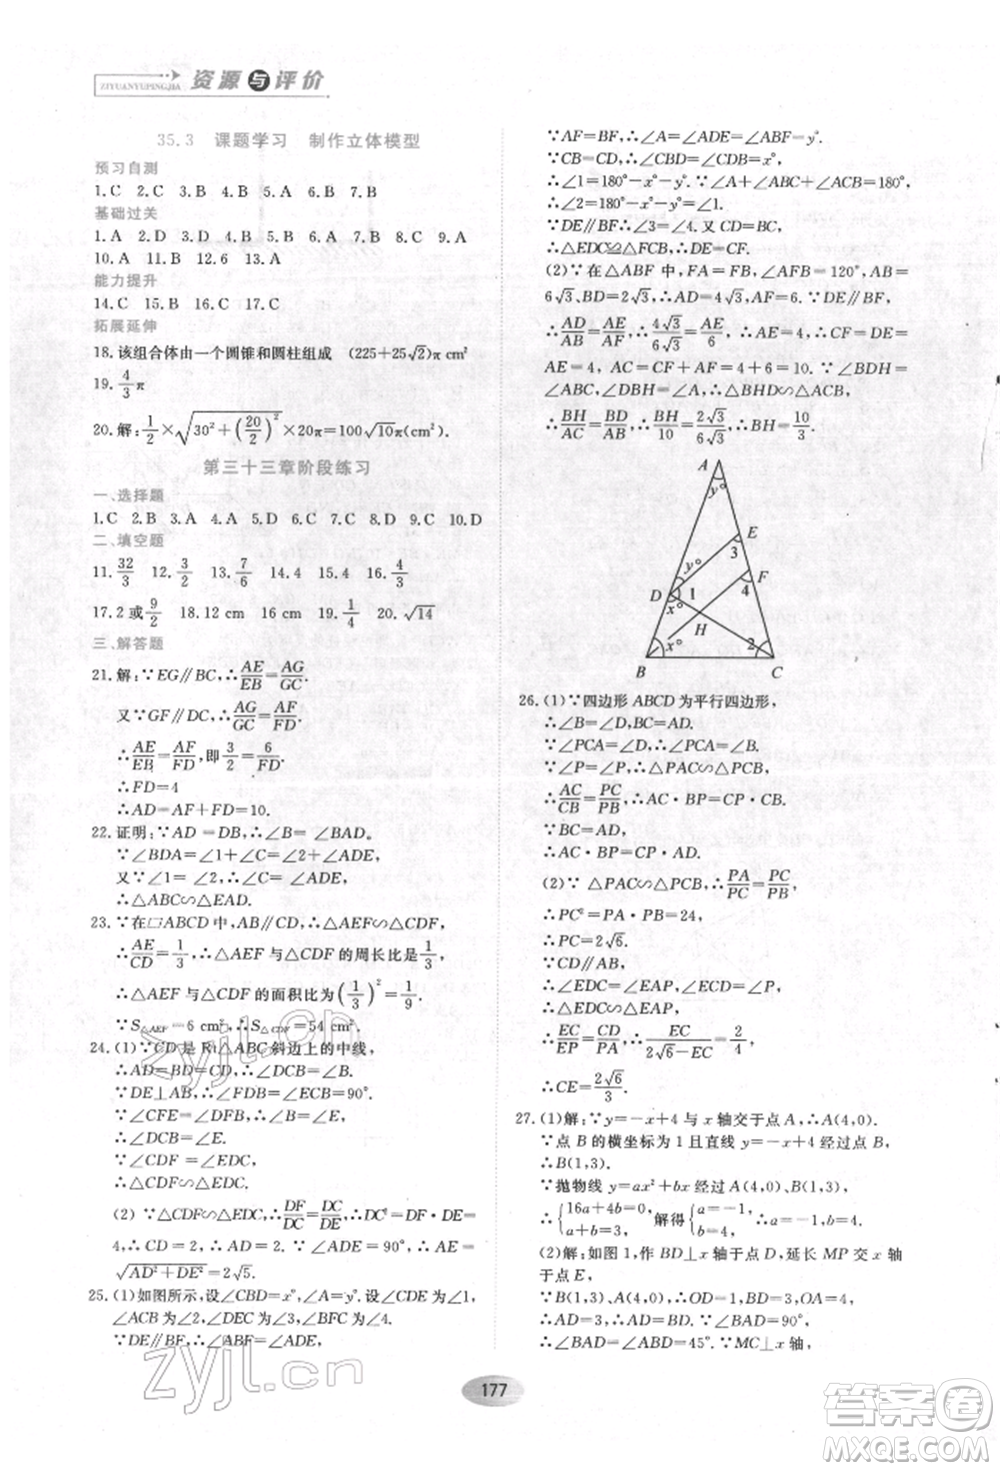 资源与评价
ZIYUANYUPINGJIA
35.3 课题学习 制作立体模型
预习自测
1.C 2.C 3.B 4.B 5.A 6.B 7.B
基础过关
1.A 2.D 3.B 4.C 5.B 6.C 7.B 8.C 9.A
10.A 11.B 12.6 13.A
能力提升
14.C 15.B 16.C 17.C
拓展延伸
18.该组合体由一个圆锥和圆柱组成 (225+25√2)π cm²
19. 4/3 π
20.解: 1/2 ×√(30²+(20/2)²)×20π=100√10π(cm²).
第三十三章阶段练习
一、选择题
1.C 2.B 3.A 4.A 5.D 6.C 7.B 8.C 9.C 10.D
二、填空题
11. 32/3 12. 3/2 13. 7/6 14.4 15.4 16. √5/5
17.2或 9/2 18.12 cm 16 cm 19. 1/4 20.√14
三、解答题
21.解:∵EG∥BC,∴AE/EB=AG/GC.
又∵GF∥DC,∴AG/GC=AF/FD.
∴AE/EB=AF/FD,即3/2=6/FD.
∴FD=4
∴AD=AF+FD=10.
22.证明:∵AD=DB,∴∠B=∠BAD。
∵∠BDA=∠1+∠C=∠2+∠ADE,
又∵∠1=∠2,∴∠C=∠ADE.
∴△ABC∽△EAD.
23.∵在□ABCD中,AB∥CD,∴△AEF∽△CDF.
∵AE/CD=1/3,∴△AEF与△CDF的周长比是1/3.
∴△AEF与△CDF的面积比为(1/3)²=1/9.
∵S△AEF=6 cm²,∴S△CDF=54 cm².
24.(1)∵CD是Rt△ABC斜边上的中线,
∴AD=CD=BD.∴∠DCB=∠B.
∵DE⊥AB,∴∠FDB=∠ACB=90°.
∴∠CFE=∠DFB,∴∠E=∠B.
∴∠DCB=∠E.
∵∠CDF=∠CDE,
∴△CDF∽△EDC.
(2)∵△CDF∽△EDC,∴DF/DC=DC/DE.∴DC²=DF·DE=
4,∴CD=2.∴AD=2.∵∠ADE=90°,∴AE=
√(AD²+DE²)=2√5.
25.(1)如图所示,设∠CBD=x°,∠A=y°.设∠CDE为∠1,
∠ACB为∠2,∠DEC为∠3,∠BFC为∠4.
∵DE∥BF,∴∠ABF=∠ADE,
∵AF=BF,∴∠A=∠ADE=∠ABF=y°.
∵CB=CD,∴∠CBD=∠CDB=x°.
∴∠1=180°-x°-y°.∵∠A+∠ABC+∠ACB=180°,
∴∠2=180°-x°-y°=∠1.
∵DE∥BF,∴∠3=∠4.又CD=BC,
∴△EDC≌△FCB.∴DE=CF.
(2)∵在△ABF中,FA=FB,∠AFB=120°,AB=
6√3,BD=2√3,∴AD=4√3,AF=6.∵DE∥BF,
∴AD/AB=AE/AF.∴4√3/6√3=AE/6.∴AE=4,∴DE=CF=
AE=4,∴AC=CF+AF=4+6=10.∵∠BDH=
∠DBH+∠BDH=∠A,∴△BHD∽△ABC.
∴BH/AC=BD/AB,∴BH/10=2√3/6√3,∴BH=10/3.
A
y°
E
3
F
4
y°
D
1
x°
H
x°
2
B
C
26.(1)∵四边形ABCD为平行四边形,
∴∠B=∠D=∠PCA,BC=AD.
∵∠PCA=∠B,∠CPA=∠BPC,
∴∠P=∠P,∴△PAC∽△PCB,
∴AC/CB=PC/PB,∴AC·BP=CP·BC.
∵BC=AD,
∴AC·BP=CP·AD.
(2)∵△PAC∽△PCB,∴PA/PC=PC/PB,
∴PC²=PA·PB=24,
∴PC=2√6.
∵CD∥AB,
∴∠EDC=∠EAP,∠ECD=∠EPA,
∴△EDC∽△EAP.
∴EC/EP=CD/PA,∴EC/(2√6-EC)=2/4,
∴CE=2√6/3.
27.(1)解:∵y=-x+4与x轴交于点A,∴A(4,0).
∵点B的横坐标为1且直线y=-x+4经过点B,
∴B(1,3).
∵抛物线y=ax²+bx经过A(4,0)、B(1,3).
∴{16a+4b=0, a+b=3, 解得{a=-1, b=4. ∴a=-1,b=4.
(2)解:如图1,作BD⊥x轴于点D,延长MP交x轴
于点E.
∵B(1,3),A(4,0),∴OD=1,BD=3,OA=4.
∴AD=3,∴AD=BD.∵∠BDA=90°.
∴∠BAD=∠ABD=45°.∵MC⊥x轴,
177
zyjl.cn
zyjl.cn
答案圈
MXQE.COM